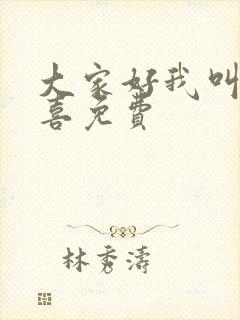 大家好我叫
喜免费
林秀濤